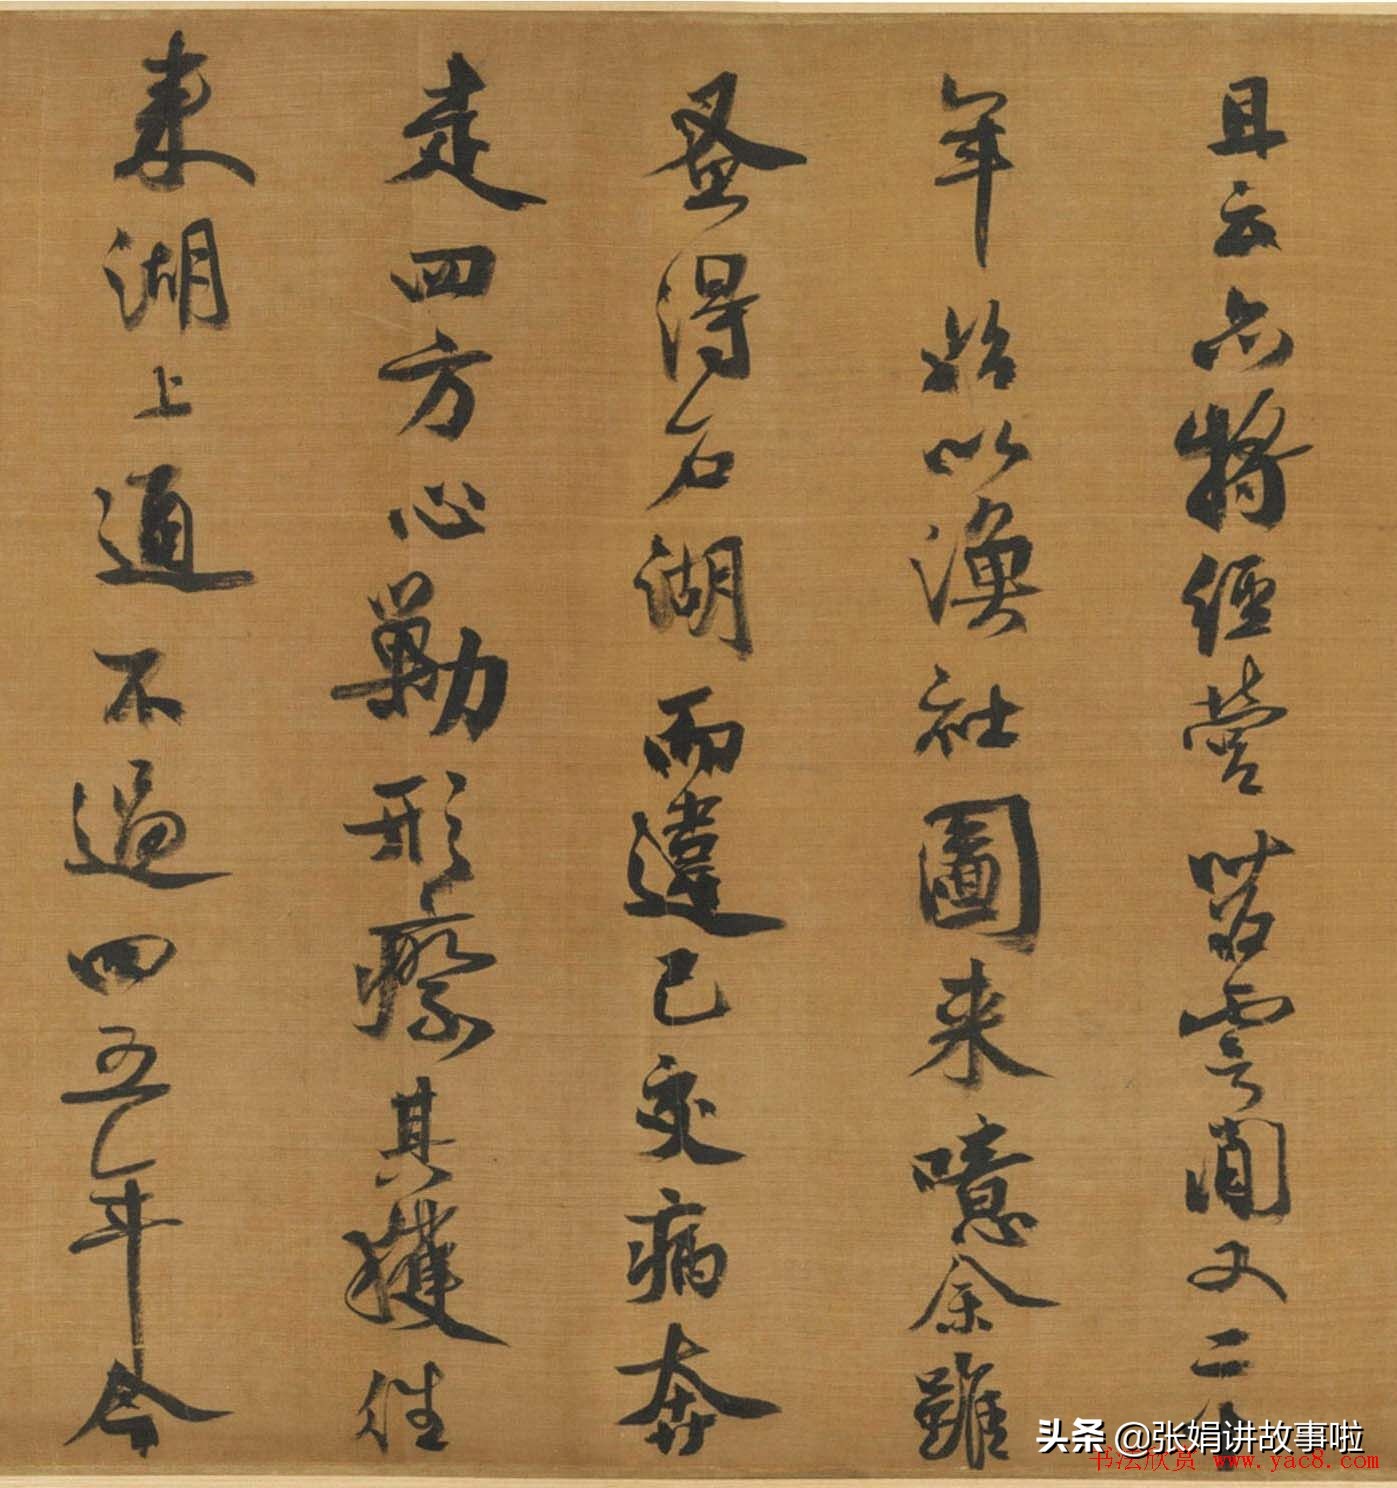 且云亦將經營苕霅間又二十
年始以漁社圖来噫余雖
蚤得石湖而違己交病奔
走四方心勦形瘵其獲往
来湖上通不過四五年今
头条 @张娟讲故事啦
书法欣赏 www.yac8.com